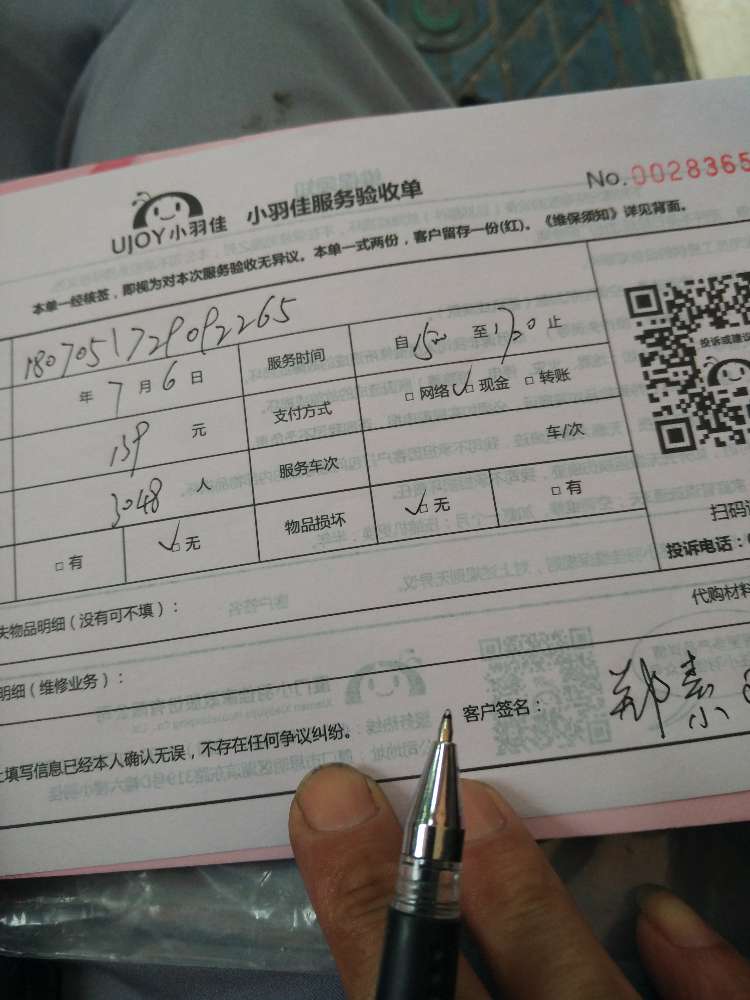 UJOY小羽佳 小羽佳服务验收单 No.0028365
本单一经核签，即视为对本次服务验收无异议。本单一式两份，客户留存一份(红)。《维保须知》详见背面。
1807051729092265 服务时间 自1520至1720止
年7月6日 支付方式 □网络 □现金 □转账
投诉或建议
139元 服务车次 车/次
3048人 物品损坏 □无 □有
□有 □无
扫码
投诉电话：
失物品明细（没有可不填）： 代购材料
明细（维修业务）：
客户签名： 郑
填写信息已经本人确认无误，不存在任何争议纠纷。